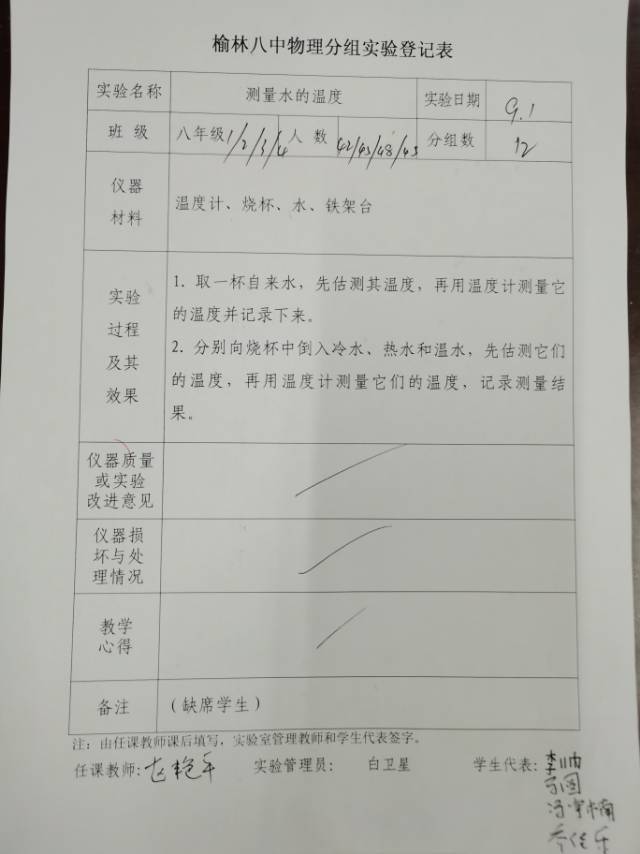 榆林八中物理分组实验登记表
实验名称 测量水的温度 实验日期 9.1
班 级 八年级1/2/3/4 人 数 42/45/48/45 分组数 12
仪器
材料
温度计、烧杯、水、铁架台
实验
过程
及其
效果
1. 取一杯自来水，先估测其温度，再用温度计测量它
的温度并记录下来。
2. 分别向烧杯中倒入冷水、热水和温水，先估测它们
的温度，再用温度计测量它们的温度，记录测量结
果。
仪器质量
或实验
改进意见
仪器损
坏与处
理情况
教学
心得
备注 （缺席学生）
注：由任课教师课后填写，实验室管理教师和学生代表签字。
任课教师: 实验管理员: 白卫星 学生代表: 李帅